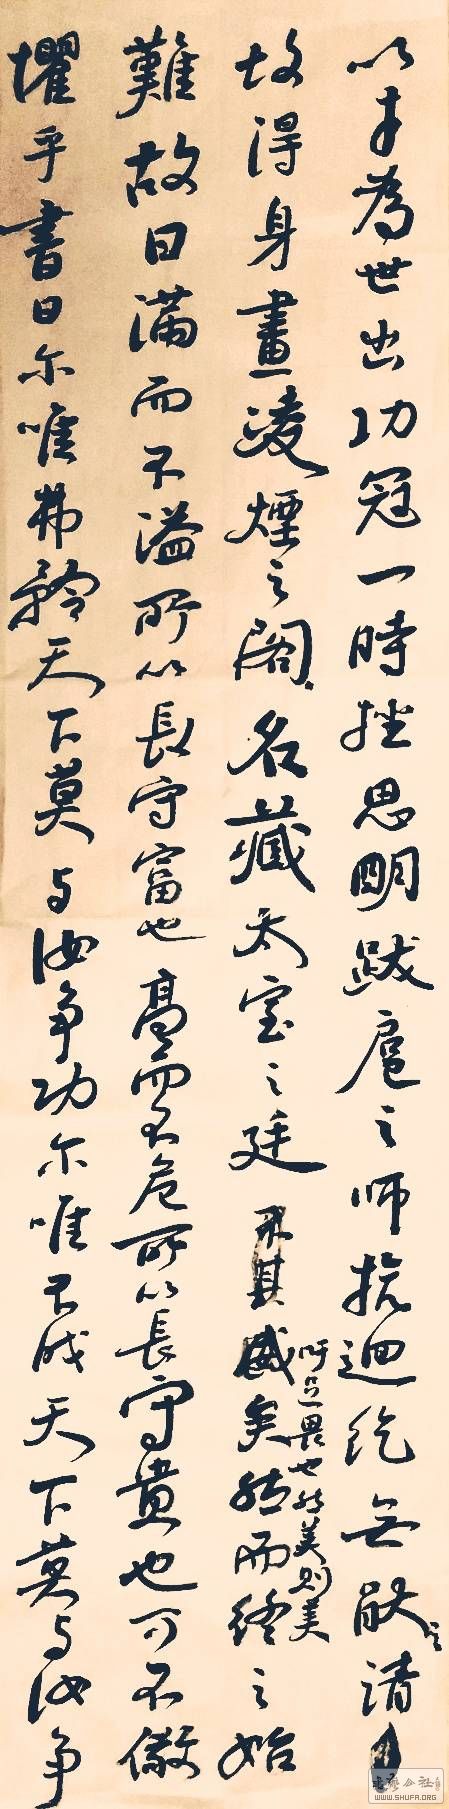 以才為世出功冠一時挫思明跋扈之師抗迴紇無猒之請
故得身畫淩煙之閣名藏太室之廷其盛矣然而終之始
吁足畏也然美則美
難故曰滿而不溢所以長守富也高而不危所以長守貴也可不儆
懼乎書曰尔唯弗矜天下莫与汝爭功尔唯不伐天下莫与汝爭
WWW.SHUFA.ORG